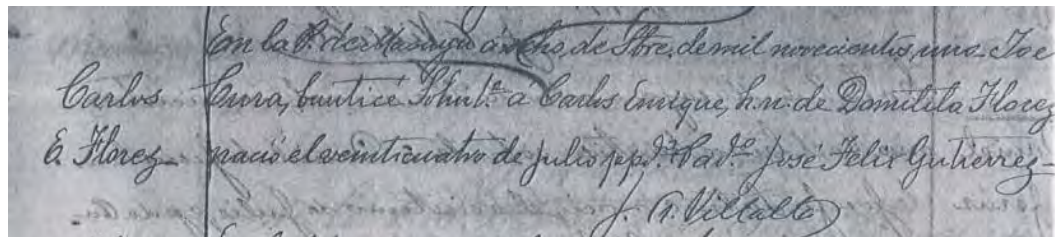 En la P. de Masaya a ocho de Stre. de mil novecientos uno Yo el
Carlos Cura, bauticé Sol.te á Carlos Enrique, h. n. de Domitila Florez
E. Florez nació el veinticuatro de julio ppdo. Pad.o José Felix Gutierrez
J. A. Villalta